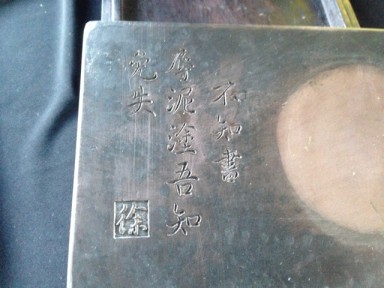 不知書
辱泥塗吾知
免矣
徐